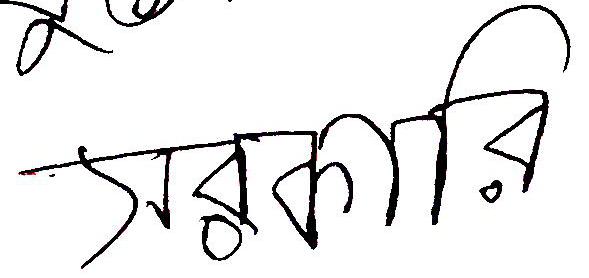 সরকারি